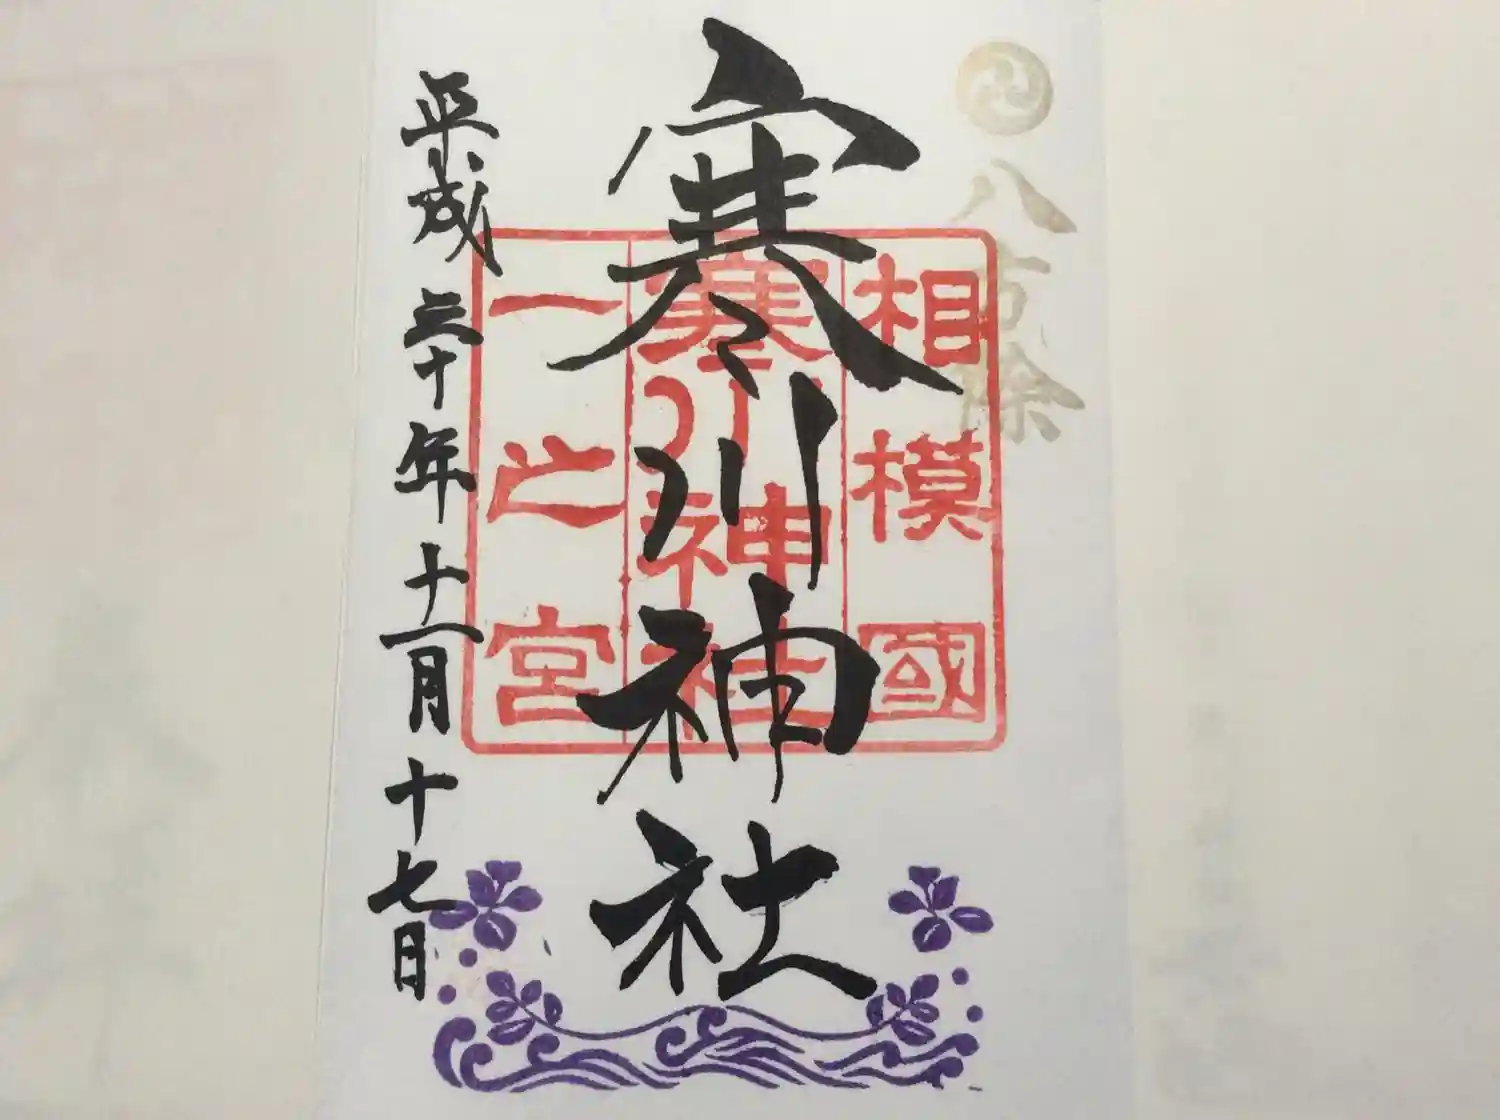 八方除
寒川神社
相模國
寒川神社
一之宮
平成三十年十一月十七日